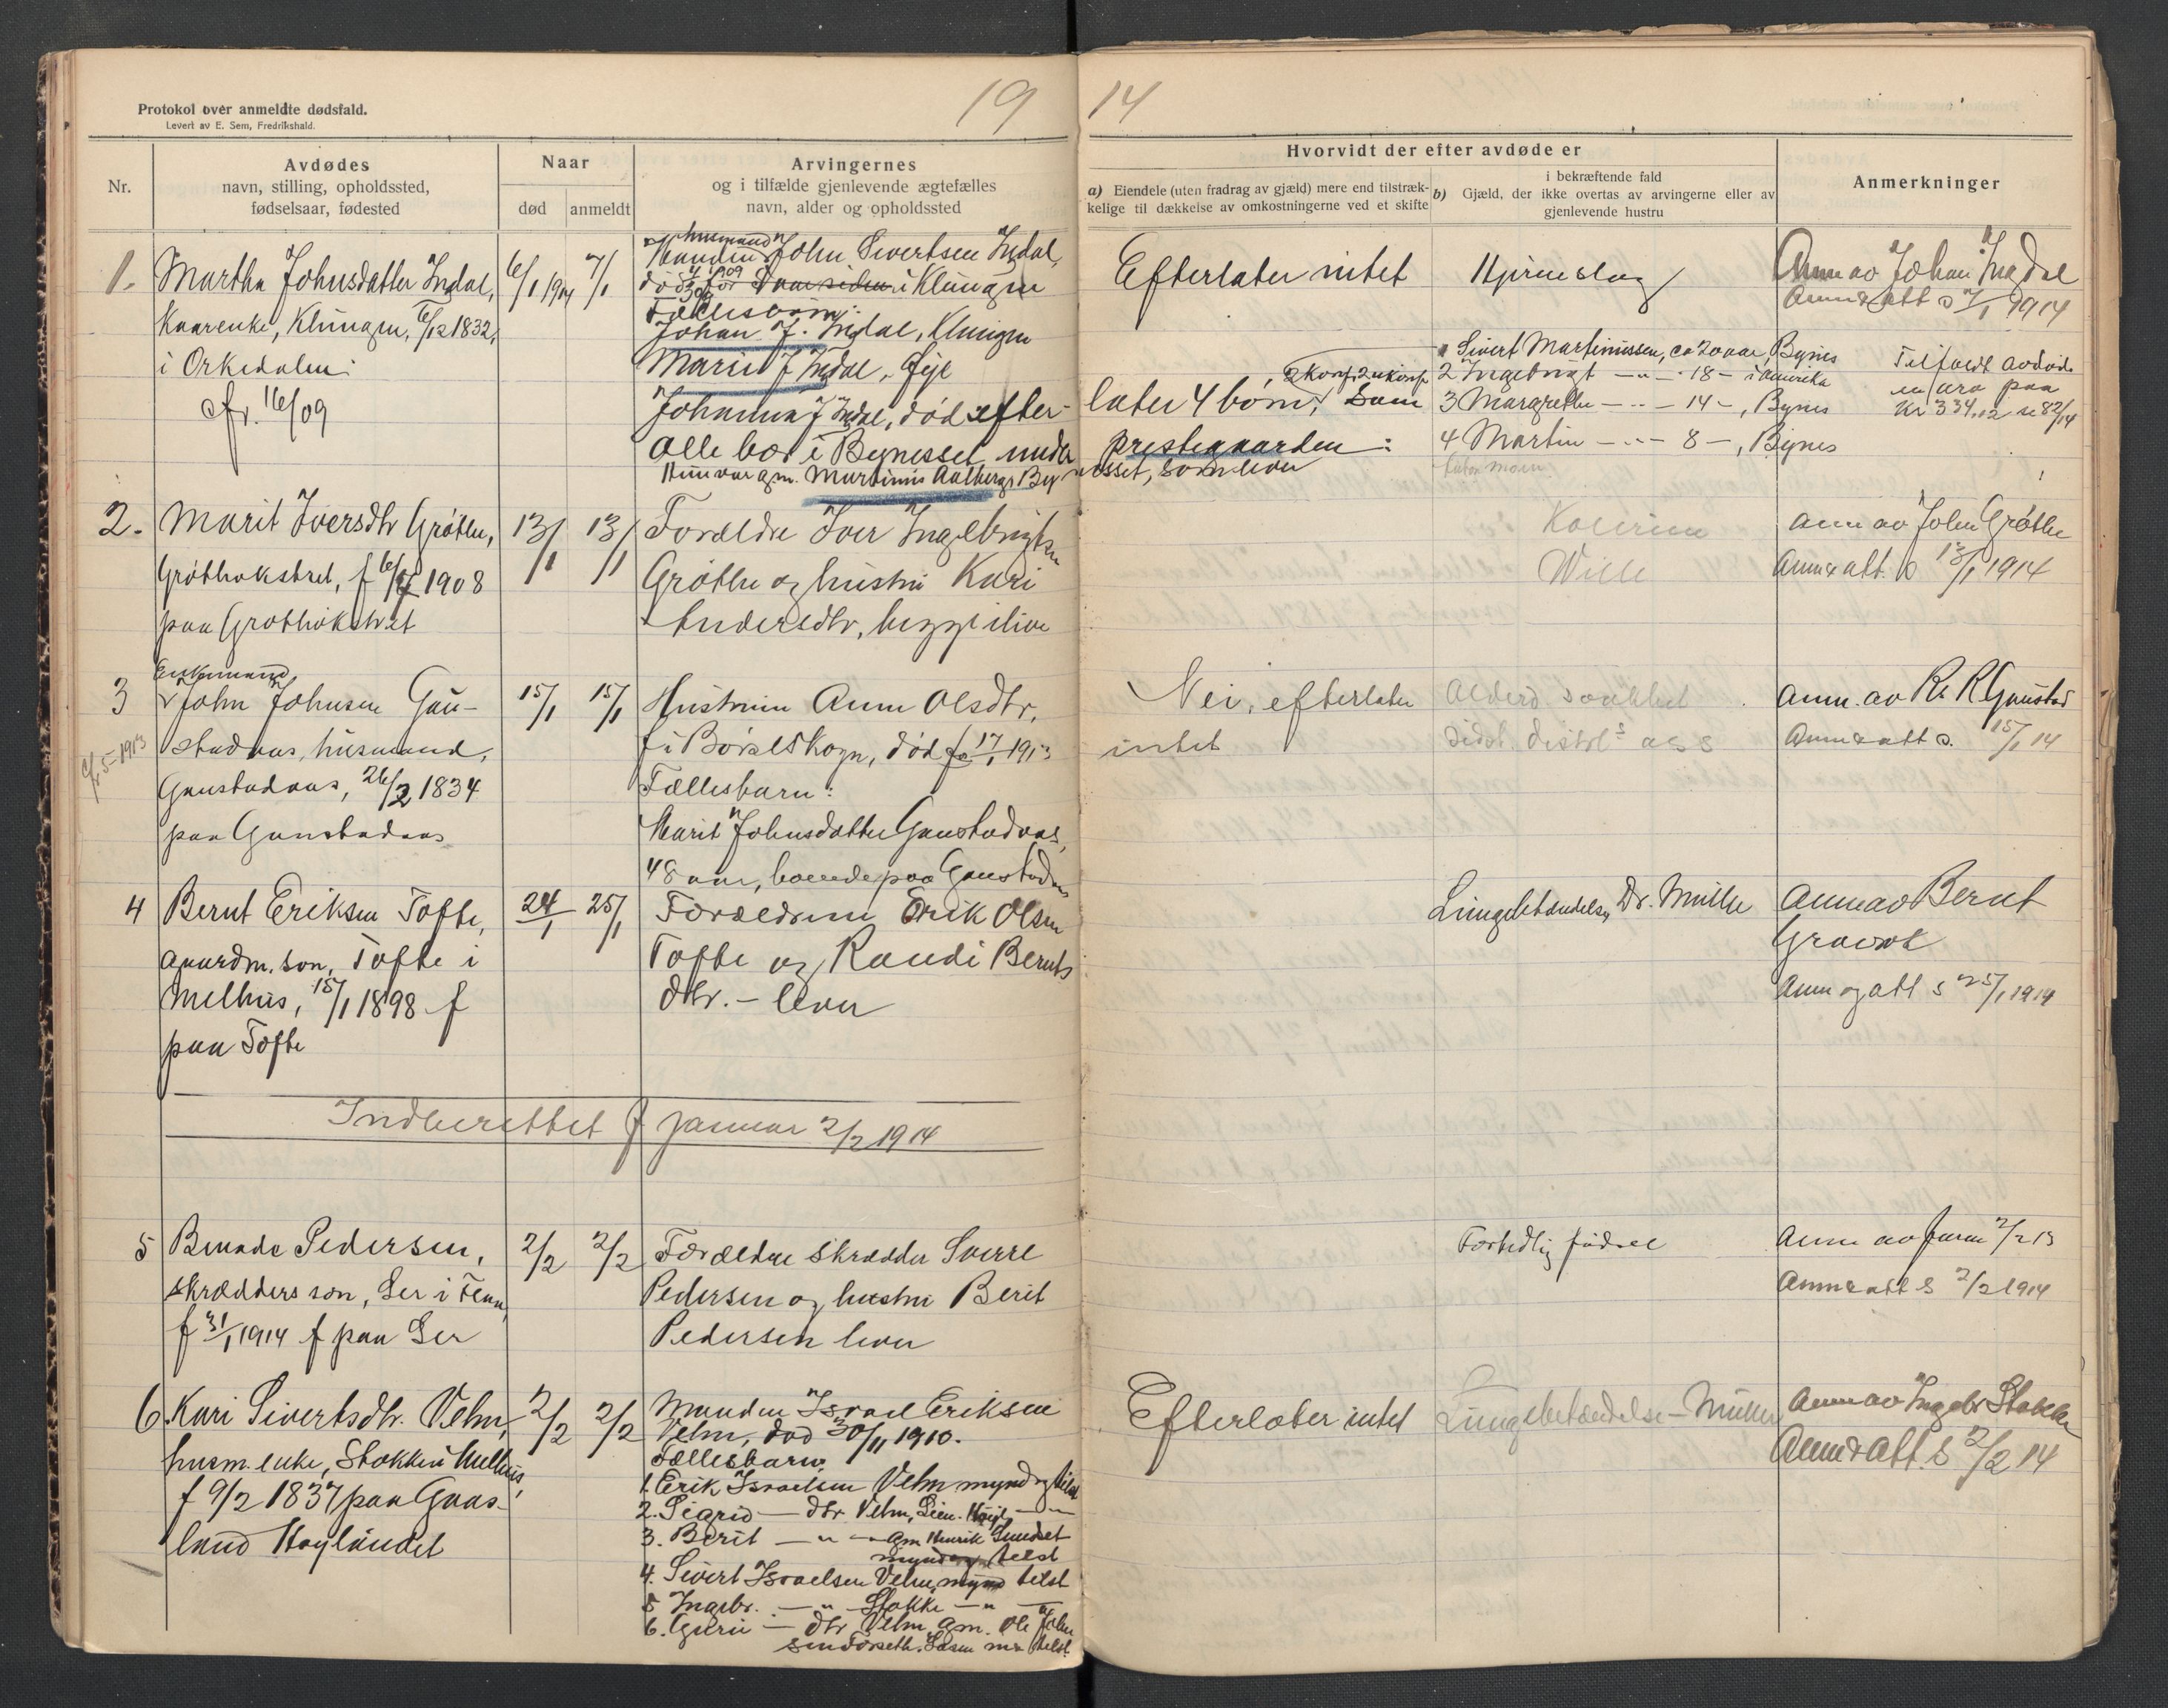 19
14
Protokol over anmeldte dødsfald.
Levert av E. Sem, Fredrikshald.
Nr.
Avdødes
navn, stilling, opholdssted,
fødselsaar, fødested
Naar
død
anmeldt
Arvingernes
og i tilfælde gjenlevende ægtefælles
navn, alder og opholdssted
Hvorvidt der efter avdøde er
a) Eiendele (uten fradrag av gjæld) mere end tilstræk-
kelige til dækkelse av omkostningerne ved et skifte
i bekræftende fald
b) Gjæld, der ikke overtas av arvingerne eller av
gjenlevende hustru
Anmerkninger
1. Martha Johnsdatter Indal,
Kaarenke, Klungen, 6/12 1832,
i Orkedalen
cfr. 16/09
6/1 1914
7/1
husmand
Manden John Sivertsen Indal,
død i Klungen
Fællesbørn:
Johan J. Indal, Klungen
Marit J Indal, Øye
Johanna J Indal, død efter-
later 4 børn, 2 konf. 2 ukonf. som
Alle bor i Bynesset under
prestegaarden:
Hun var gm. Martinus Aalberg Bynesset, som lever
Efterlater intet
Hjerneslag
Anm av Johan Indal
Anm & att S 7/1 1914
1 Sivert Martinussen, ca 20 aar, Bynes
2 Ingebrigt — " — 18 — i Amerika
3 Margrethe — " — 14 —, Bynes
4 Martin — " — 8 —, Bynes
Tilfaldt avdøde
en arv paa
Kr 334.12 se 82/14
2. Marit Iversdtr Grøthe,
Grøthokstret, f 6/7 1908
paa Grøthokstret
13/1
13/1
Forældre Iver Ingebrigtsen
Grøthe og hustru Kari
Andersdtr, begge ilive
Wille
anm av John Grøthe
Anm & att. S 13/1 1914
3
Enkemand
John Johnsen Gau-
stadaas, husmand,
Gaustadaas, 26/2 1834
paa Gaustadaas
cfr. 5-1913
15/1
15/1
Hustruen Ane Olsdtr,
f i Børselskogn, død 17/1 1913
Fællesbarn:
Marit Johnsdatter Gaustadaas,
48 aar, boende paa Gaustadaas
Nei, efterlater
intet
Alderd. svakhet
anm. av R. R Gaustad
Anm & att S. 15/1 14
4 Bernt Eriksen Tofte,
gaardm. søn, Tofte i
Melhus, 15/1 1898 f
paa Tofte
24/1
25/1
Forældrene Erik Olsen
Tofte og Randi Bernts
dtr. - lever
Lungebetændelse, Dr. Müller
Anm av Bernt
Gravrok
Anm og att S 25/1 1914
Indberettet f januar 2/2 1914
5 Pedersen,
skrædders søn, Ler i Flaa,
f 31/1 1914 f paa Ler
2/2
2/2
Forældre skrædder Sverre
Pedersen og hustru Berit
Pedersen lever
Fortidlig fødsel
Anm av faren 2/2 13
Anm & att S 2/2 1914
6. Kari Sivertsdtr. Velm,
husm. enke, Stokke i Melhus,
f 9/2 1837 paa Gaas-
land Høylandet
2/2
2/2
Manden Israel Eriksen
Velm, død 30/11 1910.
Fællesbarn:
1. Erik Israelsen Velm mynd og tilst
2. Sigrid — dtr Velm, Lien. Høyl. — "
3. Berit — " — gm Henrik Sundset
mynd og tilst
4. Sivert Israelsen Velm, mynd tilst
5 Ingebr. — " — Stokke — " —
6. Guru — dtr Velm gm. Ole John
sen Forseth, tilst.
Efterlater intet
Lungebetændelse - Müller
Anm av Ingebr Stokke
Anm & att. S 2/2 14